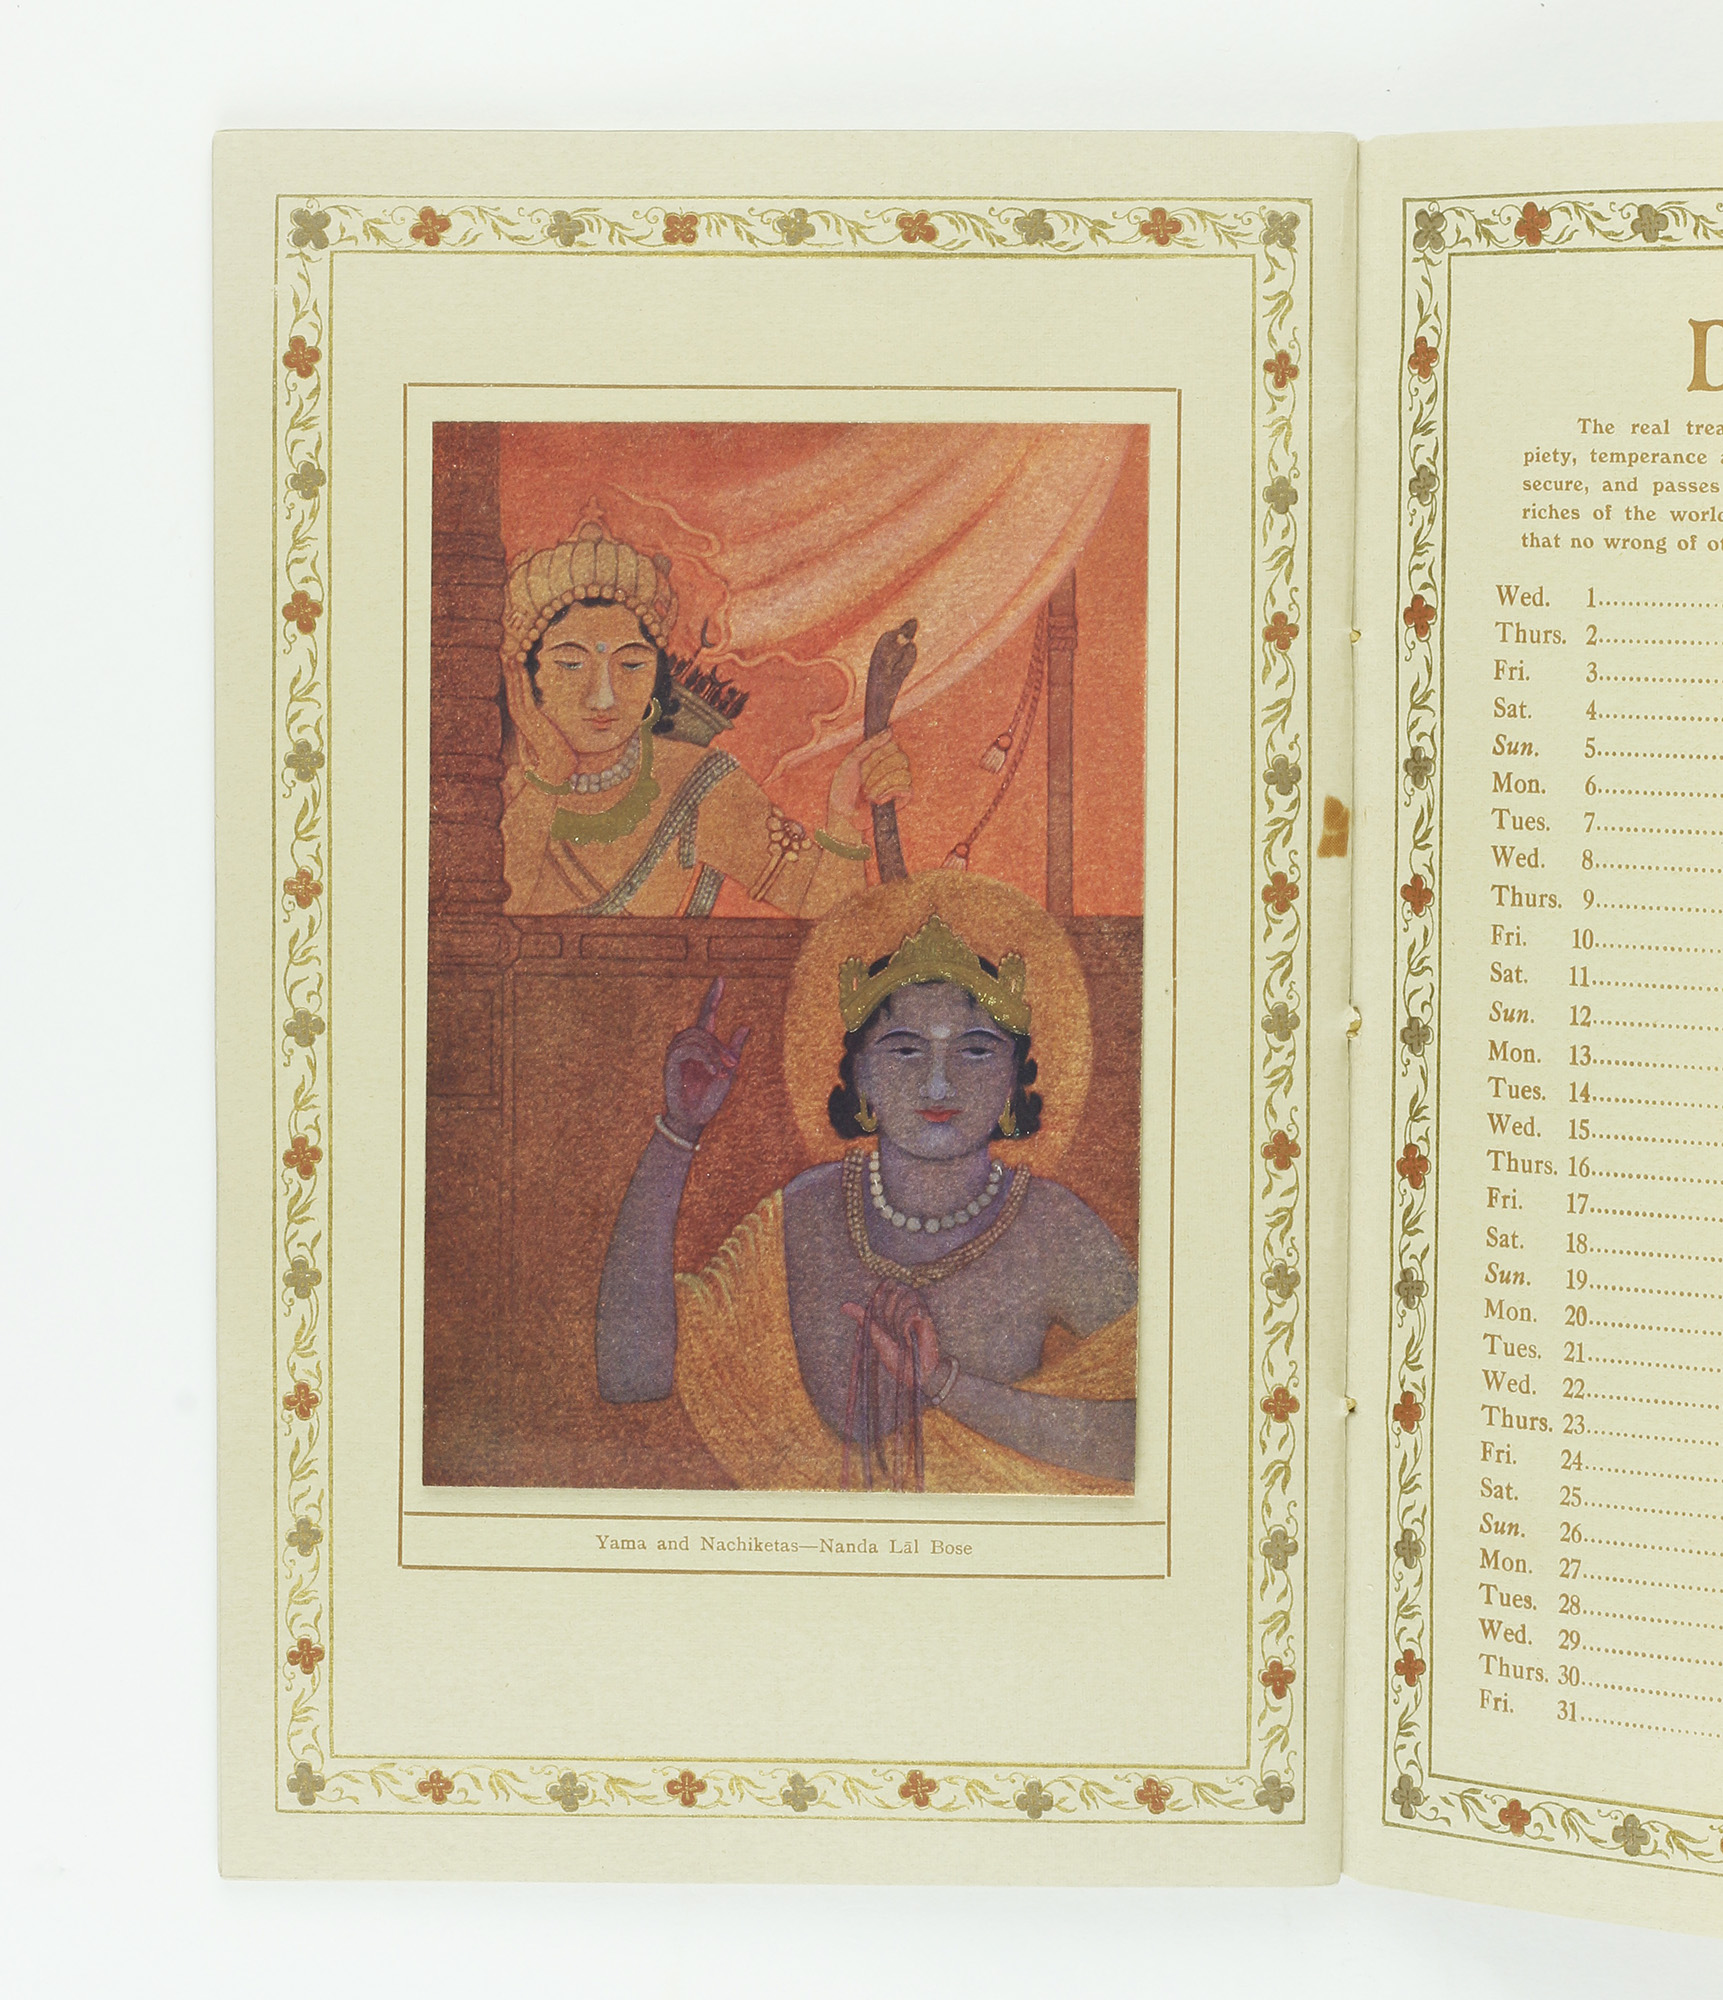 Yama and Nachiketas—Nanda Lāl Bose
D
The real
piety, temperance
secure, and passes
riches of the
that no wrong of
Wed. 1
Thurs. 2
Fri. 3
Sat. 4
Sun. 5
Mon. 6
Tues. 7
Wed. 8
Thurs. 9
Fri. 10
Sat. 11
Sun. 12
Mon. 13
Tues. 14
Wed. 15
Thurs. 16
Fri. 17
Sat. 18
Sun. 19
Mon. 20
Tues. 21
Wed. 22
Thurs. 23
Fri. 24
Sat. 25
Sun. 26
Mon. 27
Tues. 28
Wed. 29
Thurs. 30
Fri. 31